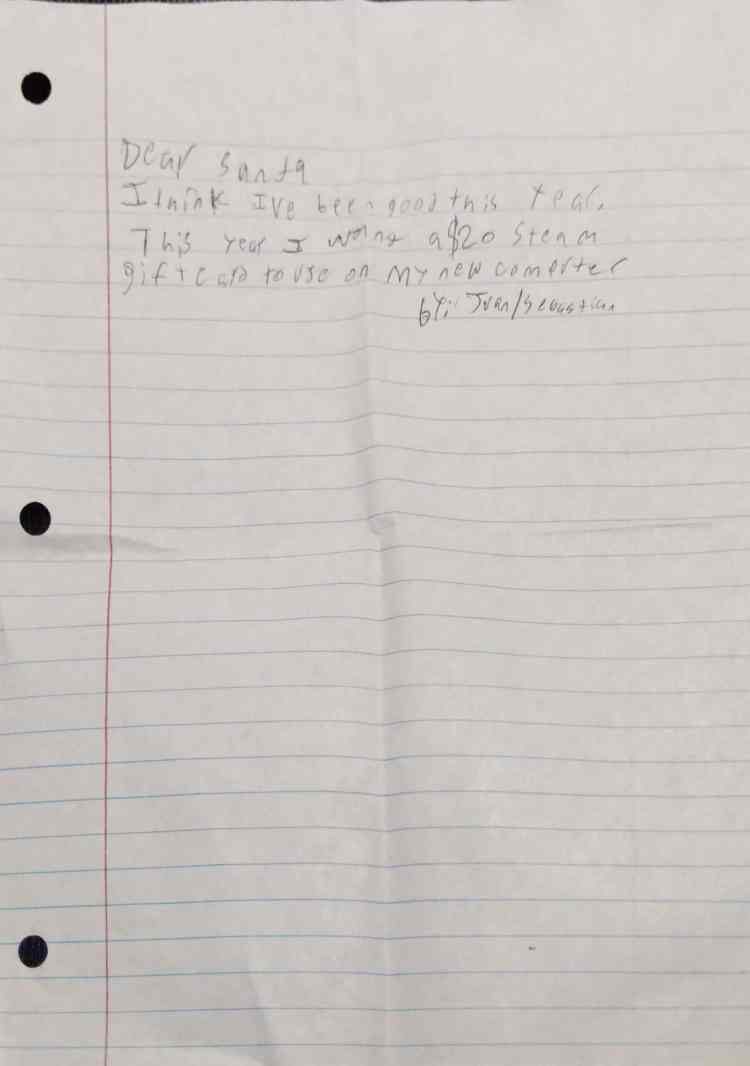 Dear Santa
I think I've been good this Year.
This Year I a $20 Steam
gift card to use on My new comperter
by: Juan/Sebastian